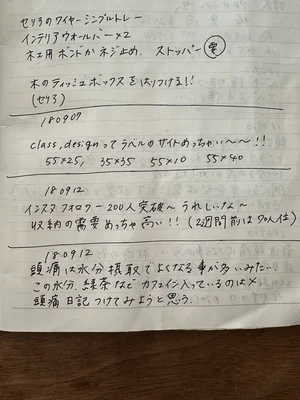 セリアのワイヤーシンプルトレー
インテリアウォールバー×2
木工用ボンドかネジ止め. ストッパー 要
木のティッシュボックスをはりつける!!
(セリア)
180907
class,designってラベルのサイトめっちゃいい〜〜!!
55×25, 35×35 55×10 55×40
180912
インスタフォロワー200人突破〜うれしいな〜
収納の需要めっちゃ高い!! (2週間前は70人位)
180912
頭痛は水分摂取でよくなる事が多いみたい.
この水分、緑茶などカフェイン入っているのは×.
頭痛日記つけてみようと思う.